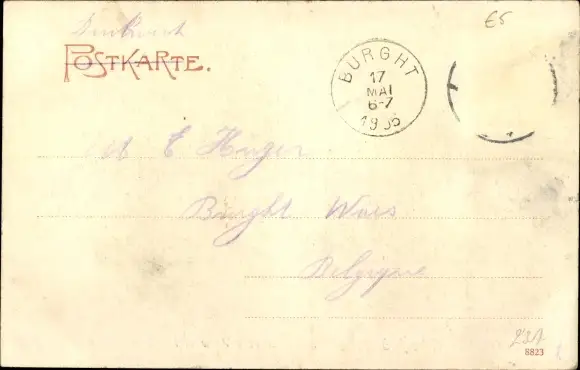 Drukwerk
POSTKARTE.
BURGHT
17
MAI
6-7
1905
E Huger
Burght Waes
Belgique
8823